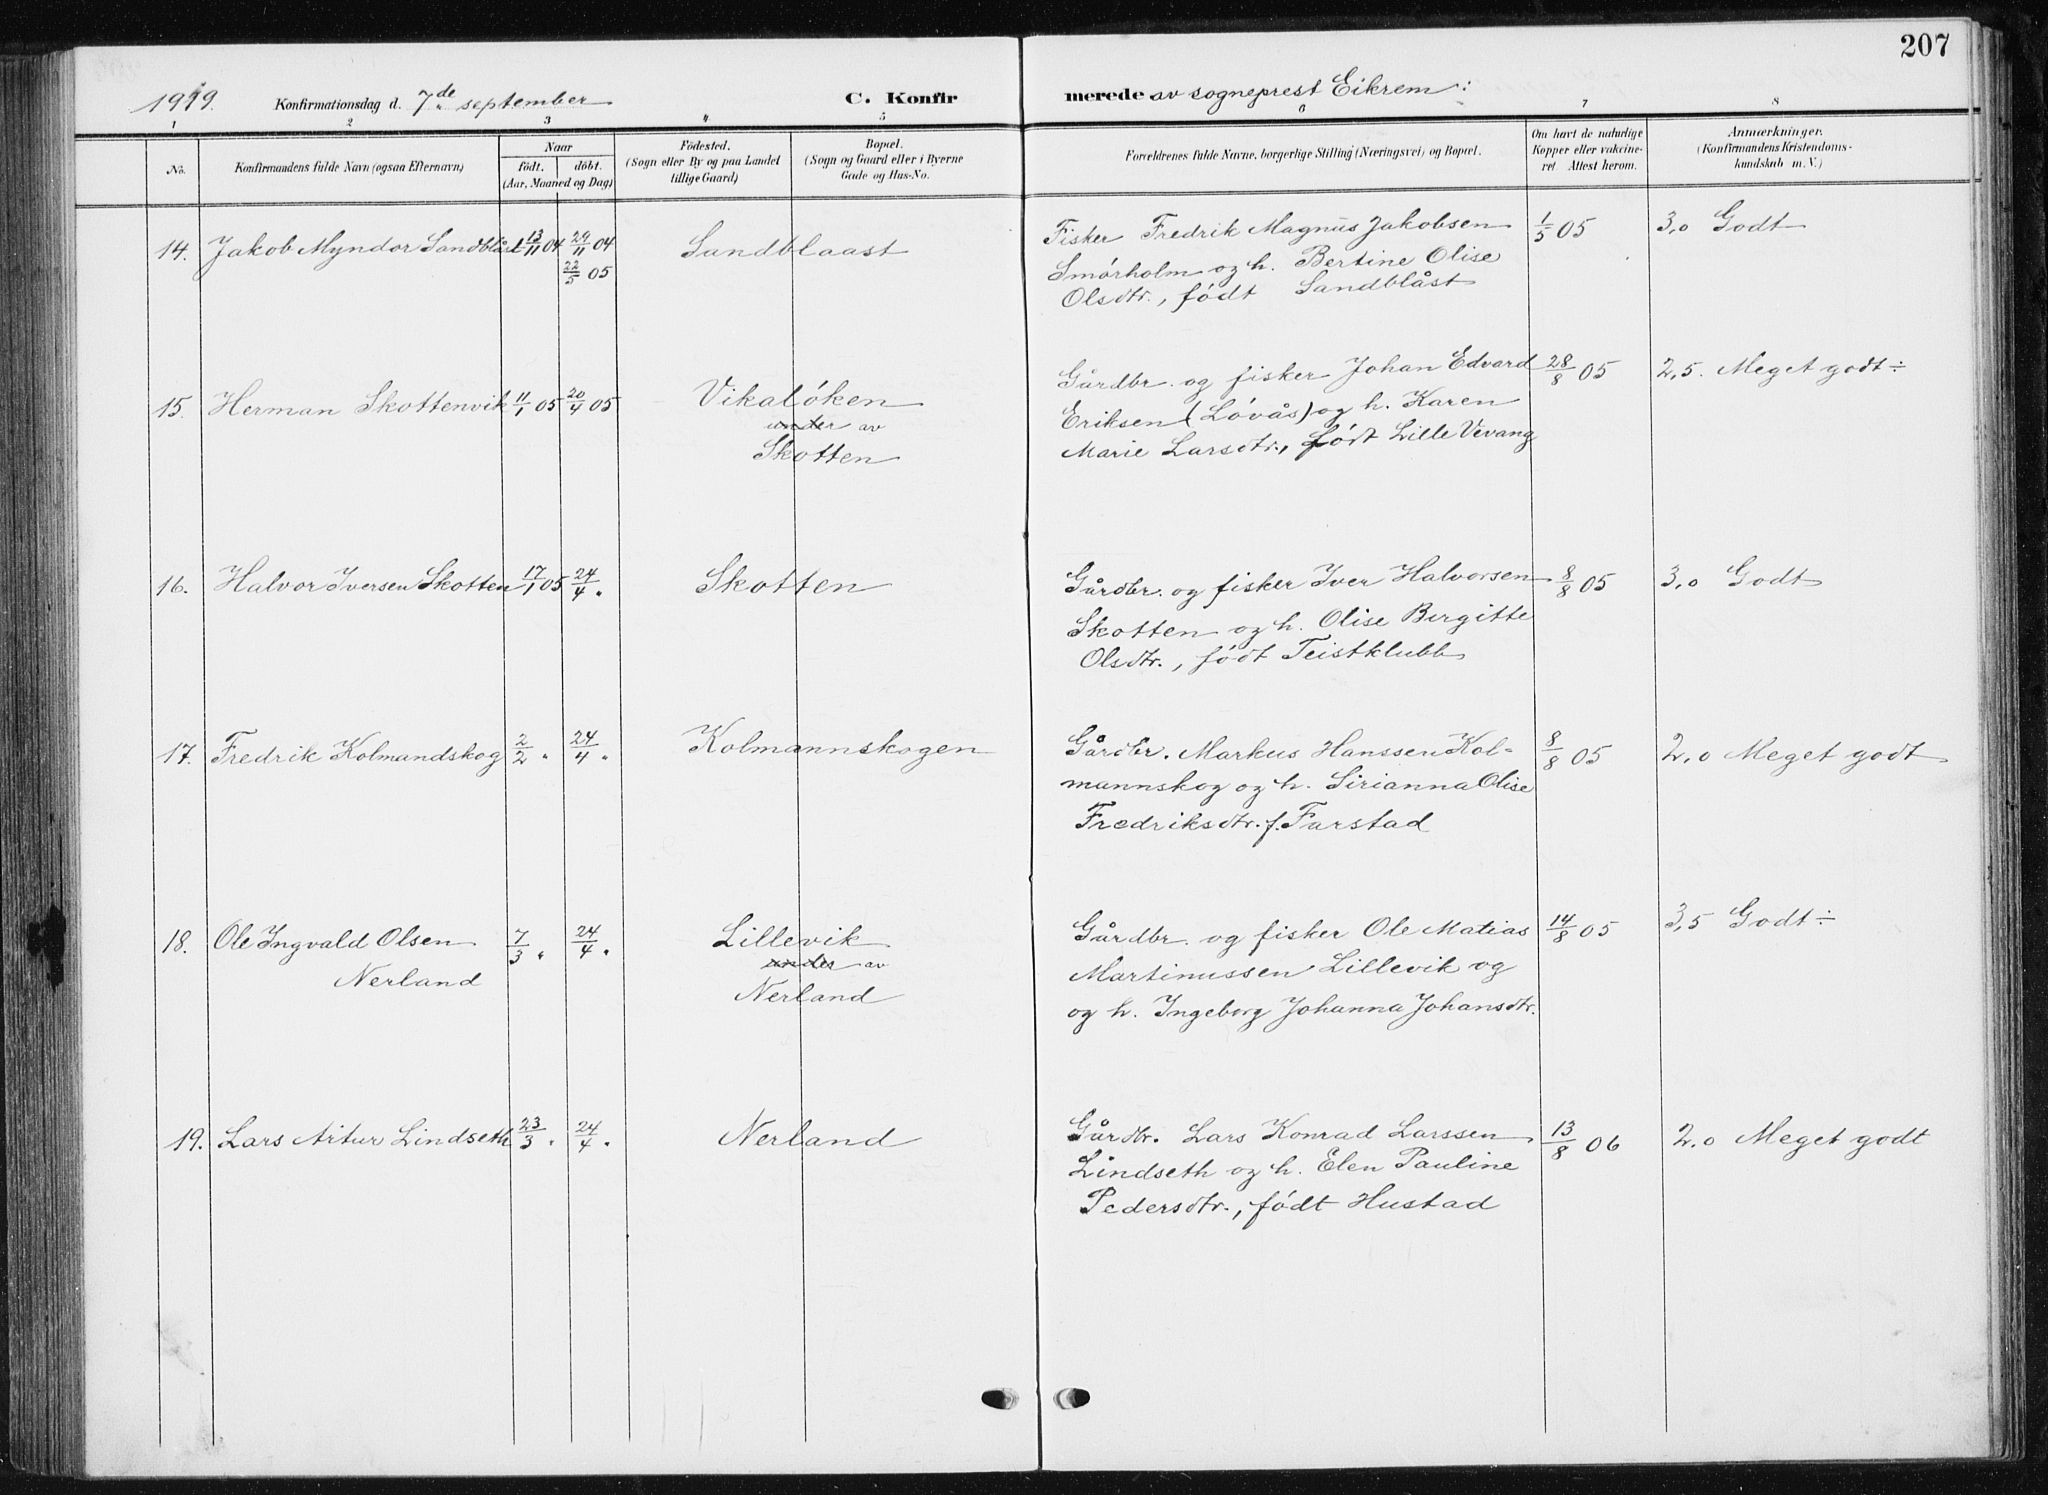 207
1919. Konfirmationsdag d. 7de september C. Konfir merede av sogneprest Eikrem:
1 2 3 4 5 6 7 8
No. Konfirmandens fulde Navn (ogsaa Efternavn) Naar Födested. Bopæl. Forældrenes fulde Navne, borgerlige Stilling (Næringsvei) og Bopæl. Om havt de naturlige Anmærkninger.
födt. döbt. (Sogn eller By og paa Landet (Sogn og Gaard eller i Byerne Kopper eller vakcine- (Konfirmandens Kristendoms-
(Aar, Maaned og Dag) tillige Gaard) Gade og Hus-No. ret. Attest herom. kundskab m. V.)
14. Jakob Myndor Sandblåst 13/11 04 29/11 04 Sandblaast Fisker Fredrik Magnus Jakobsen 1/5 05 3,0 Godt
22/5 05 Smørholm og h. Bertine Olise
Olsdtr., født Sandblåst
15. Herman Skottenvik 11/1 05 20/4 05 Vikaløken Gårdbr. og fisker Johan Edvard 28/8 05 2,5. Meget godt ÷
under av Eriksen (Løvås) og h. Karen
Skotten Marie Larsdtr., født Lille Vevang
16. Halvor Iversen Skotten 17/1 05 24/4 " Skotten Gårdbr. og fisker Iver Halvorsen 8/8 05 3,0 Godt
Skotten og h. Olise Birgitte
Olsdtr., født Teistklubb
17. Fredrik Kolmandskog 2/2 " 24/4 " Kolmannskogen Gårdbr. Markus Hanssen Kol- 8/8 05 2,0 Meget godt
mannskog og h. Sirianna Olise
Fredriksdtr. f. Farstad
18. Ole Ingvald Olsen 7/3 " 24/4 " Lillevik Gårdbr. og fisker Ole Matias 14/8 05 3,5 Godt ÷
Nerland under av Martinussen Lillevik og
Nerland og h. Ingeborg Johanna Johansdtr.
19. Lars Artur Lindseth 23/3 " 24/4 " Nerland Gårdbr. Lars Konrad Larssen 13/8 06 2,0 Meget godt
Lindseth og h. Elen Pauline
Pedersdtr., født Hustad